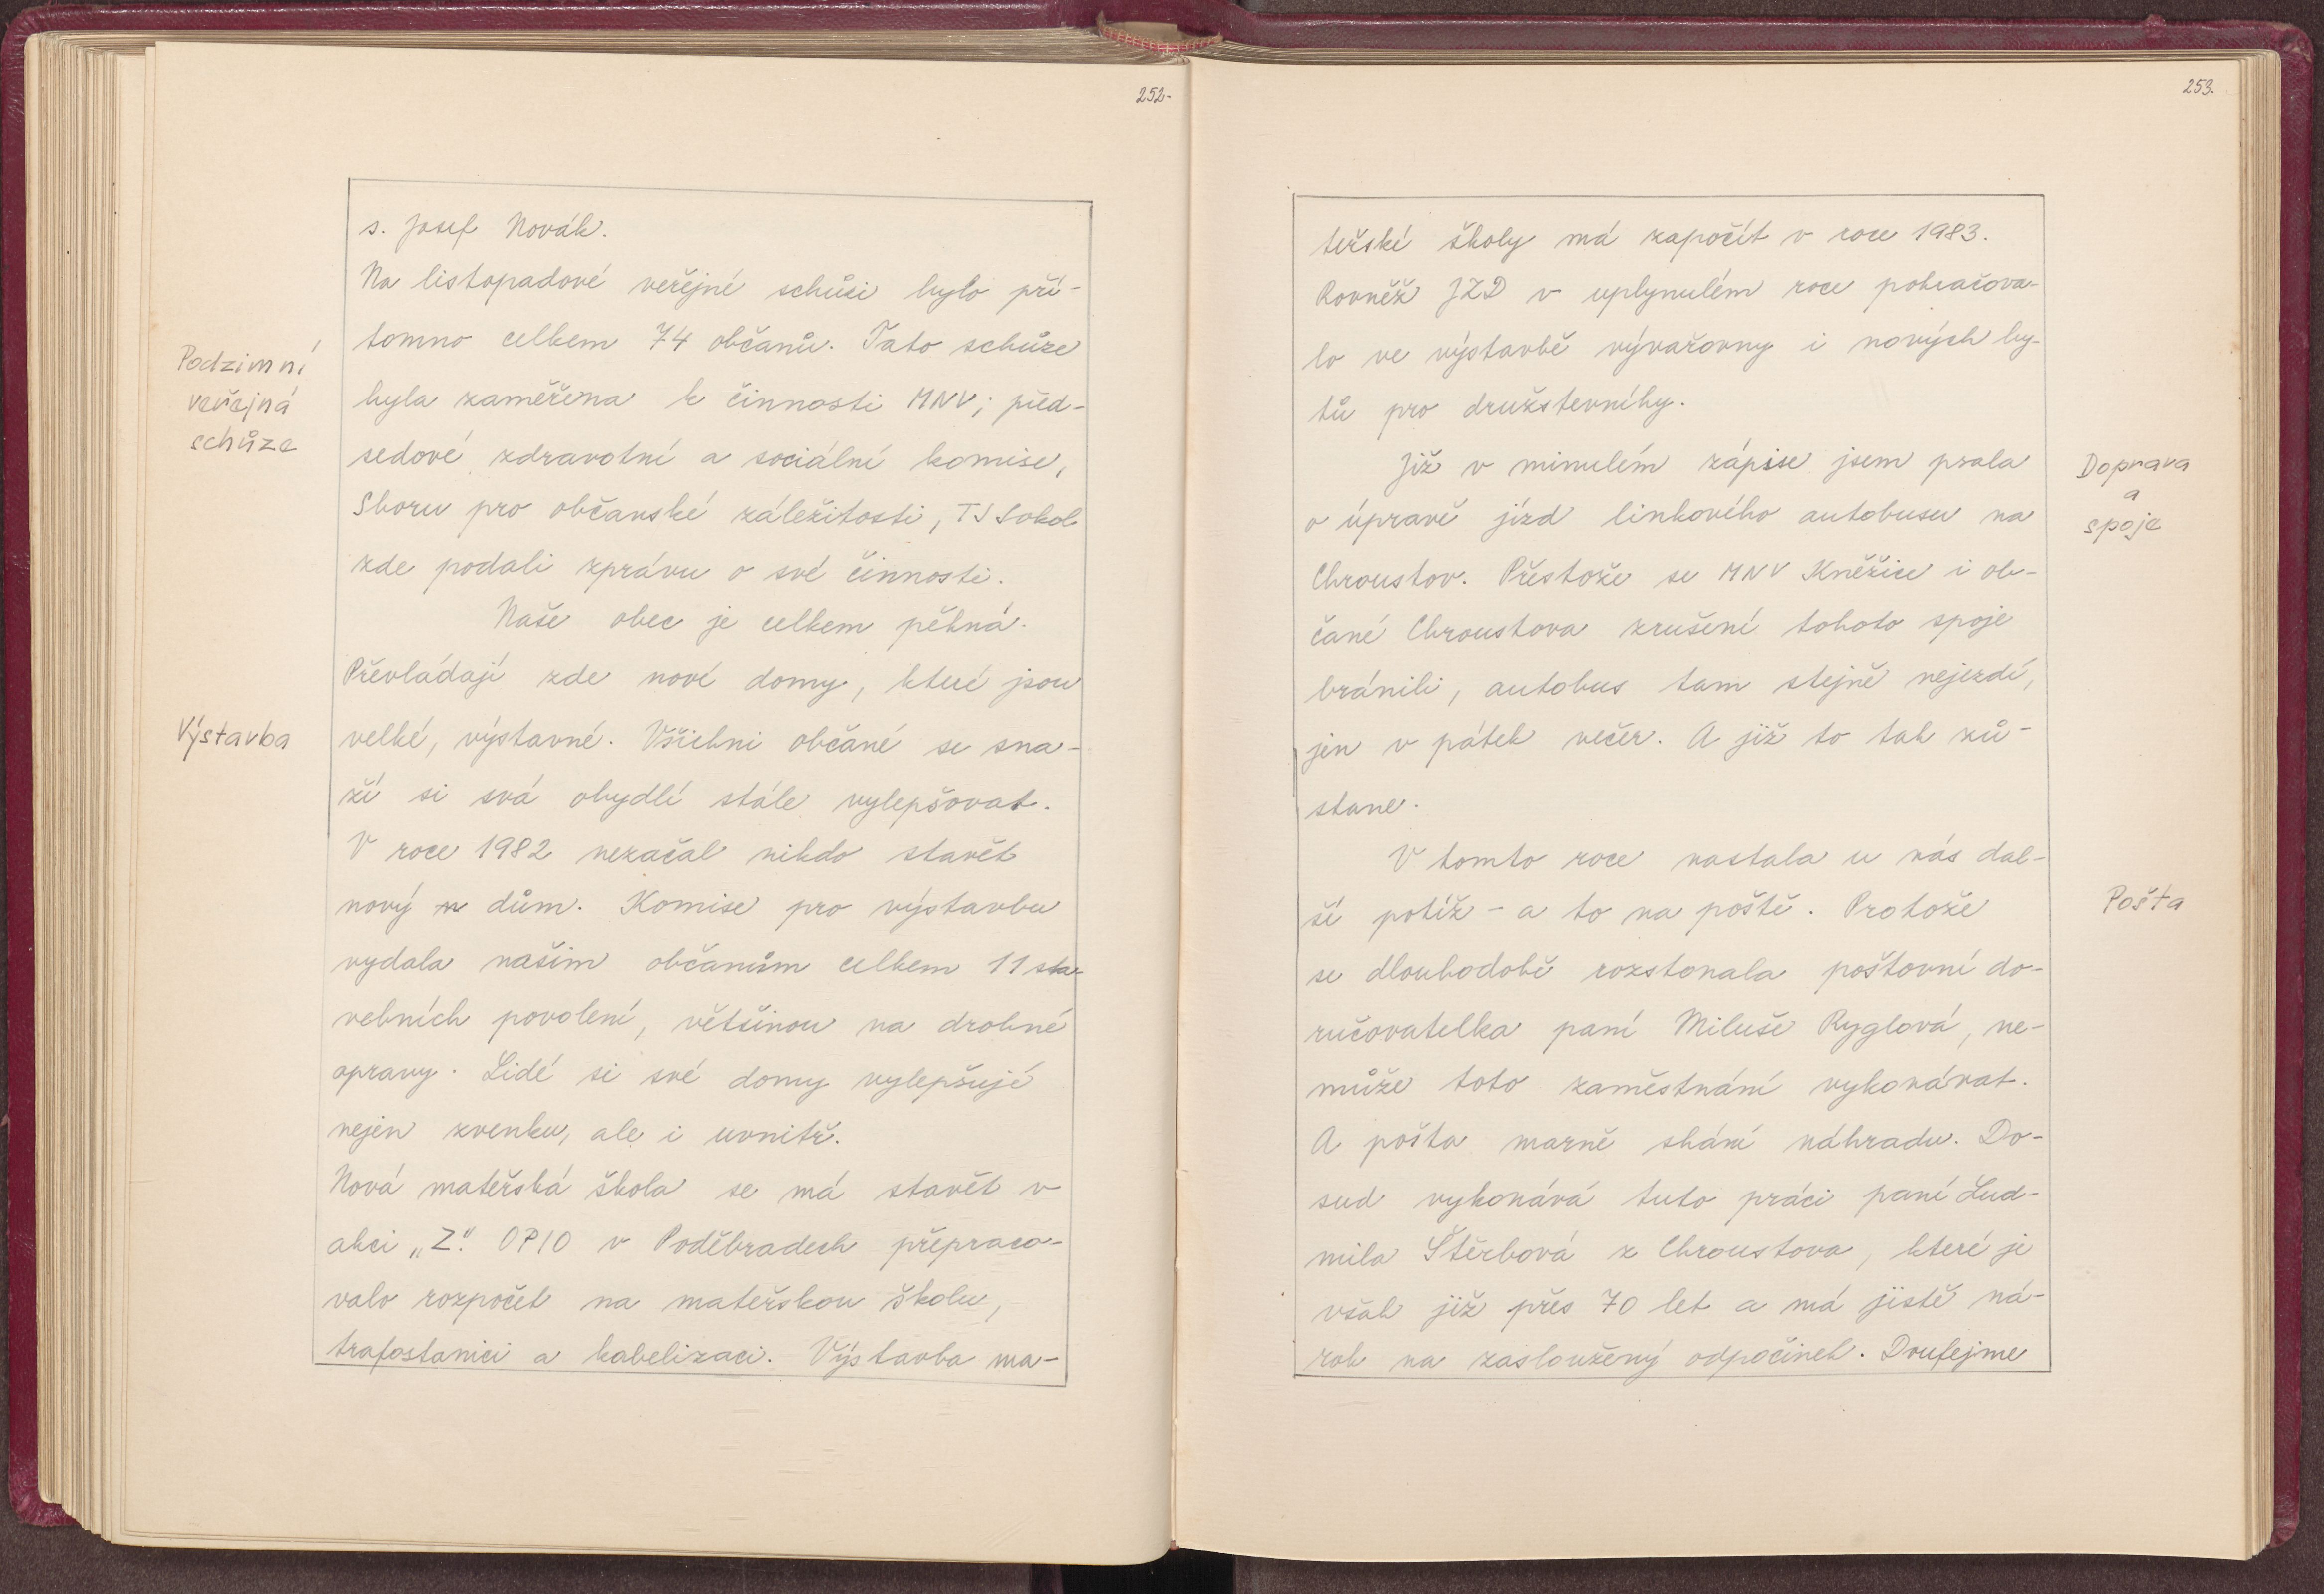 252.
s. Josef Novák.
Na listopadové veřejné schůzi bylo pří-
tomno celkem 74 občanů. Tato schůze
byla zaměřena k činnosti MNV; před-
sedové zdravotní a sociální komise,
Sboru pro občanské záležitosti, TJ Sokol
zde podali zprávu o své činnosti.
Podzimní
veřejná
schůze
Naše obec je celkem pěkná.
Převládají zde nové domy, které jsou
velké, výstavné. Všichni občané se sna-
ží si svá obydlí stále vylepšovat.
V roce 1982 nezačal nikdo stavět
nový n dům. Komise pro výstavbu
vydala našim občanům celkem 11 sta-
vebních povolení, většinou na drobné
opravy. Lidé si své domy vylepšují
nejen zvenku, ale i uvnitř.
Nová mateřská škola se má stavět v
akci „Z". OPIO v Poděbradech přepraco-
valo rozpočet na mateřskou školu,
trafostanici a kabelizaci. Výstavba ma-
Výstavba
253.
teřské školy má započít v roce 1983.
Rovněž JZD v uplynulém roce pokračova-
lo ve výstavbě vývařovny i nových by-
tů pro družstevníky.
Již v minulém zápise jsem psala
o úpravě jízd linkového autobusu na
Chroustov. Přestože se MNV Kněžice i ob-
čané Chroustova zrušení tohoto spoje
bránili, autobus tam stejně nejezdí,
jen v pátek večer. A již to tak zů-
stane.
Doprava
a
spoje
V tomto roce nastala u nás dal-
ší potíž - a to na poště. Protože
se dlouhodobě rozstonala poštovní do-
ručovatelka paní Miluše Ryglová, ne-
může toto zaměstnání vykonávat.
A pošta marně shání náhradu. Do-
sud vykonává tuto práci paní Lud-
mila Štěrbová z Chroustova, které je
však již přes 70 let a má jistě ná-
rok na zasloužený odpočinek. Doufejme
Pošta